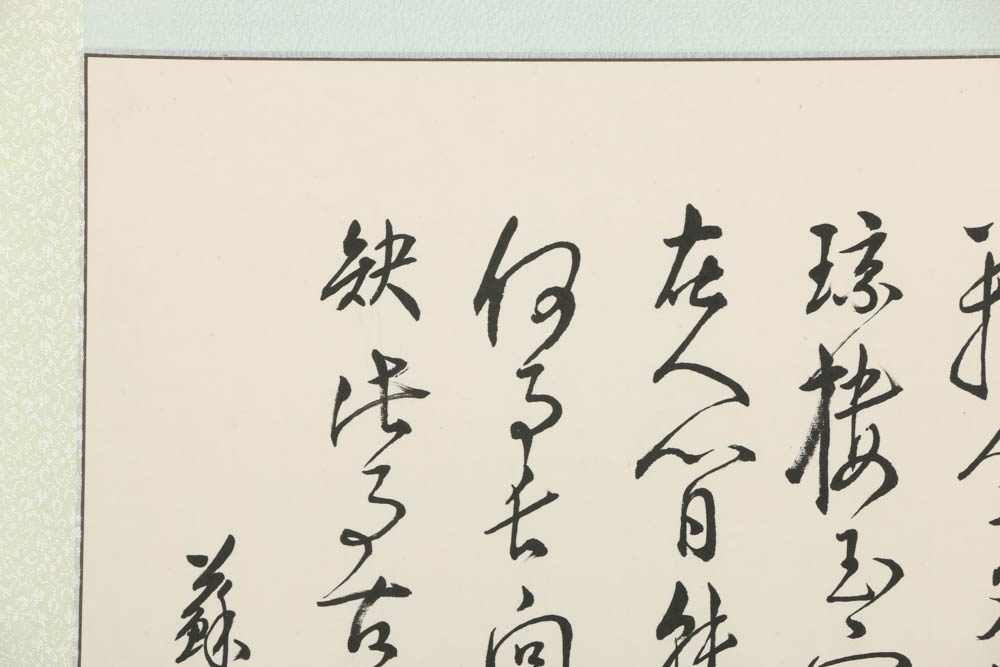 琼楼玉
在人間
何事長向
缺此事古
蘇